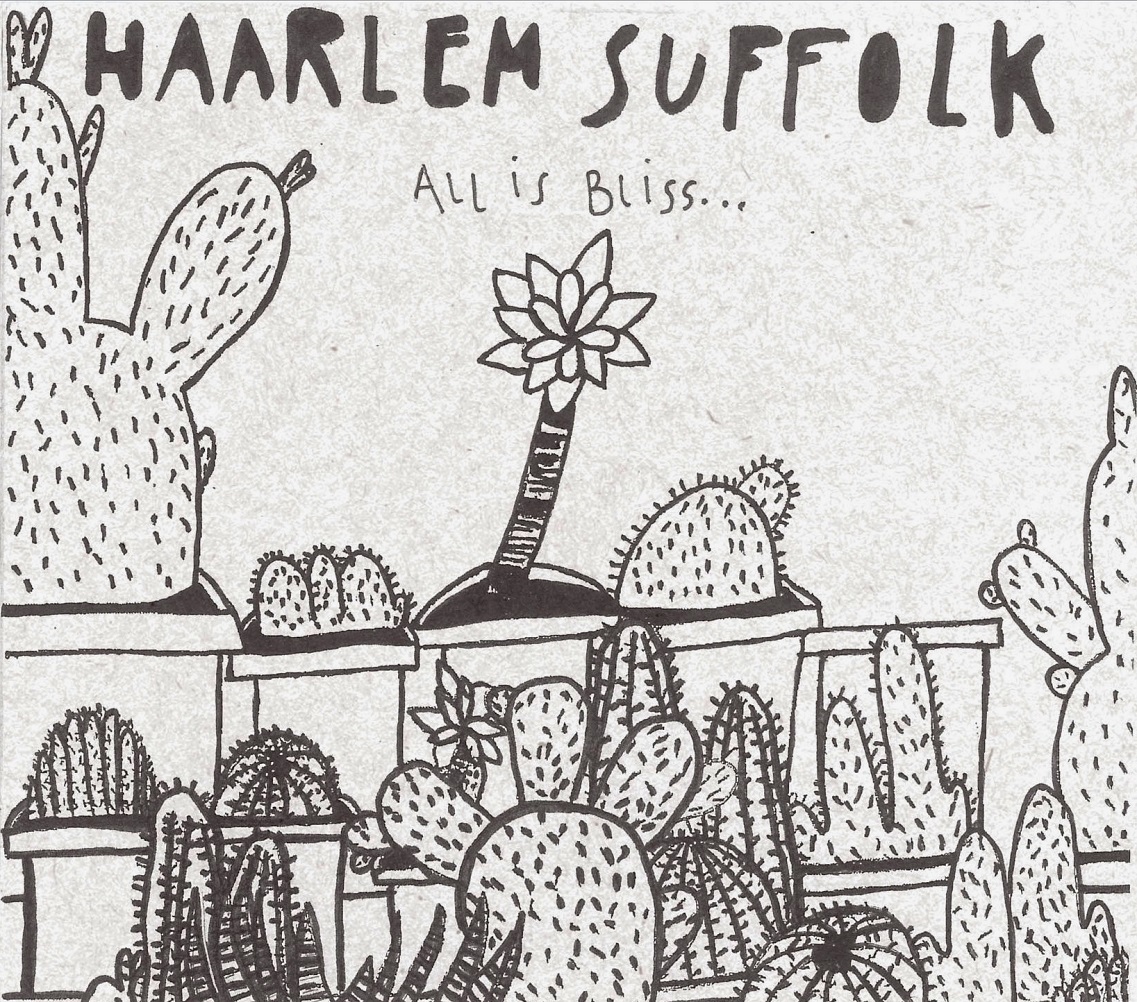 HAARLEM SUFFOLK
ALL is BLiss...